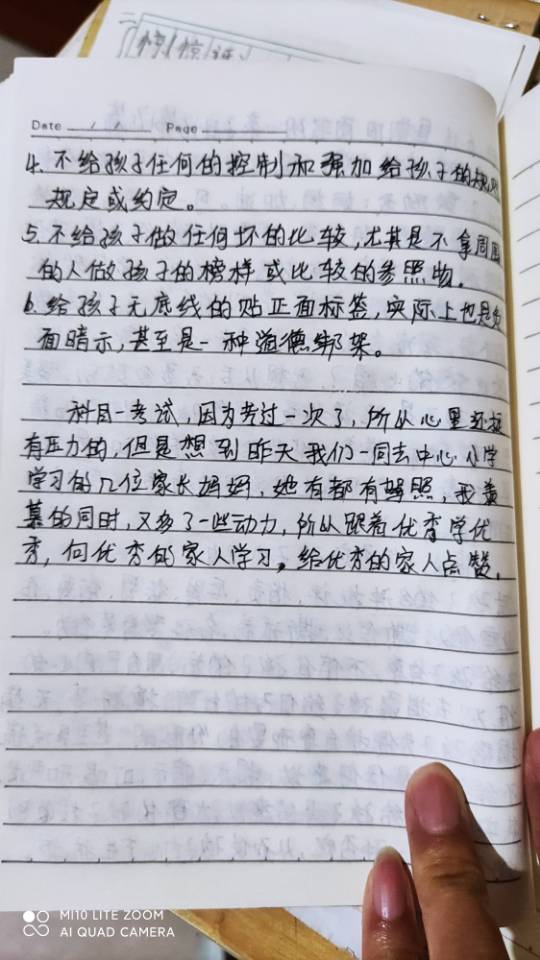 惊 惊
Date / / Page
4. 不给孩子任何的控制和强加给孩子的规则
规定或约定。
5. 不给孩子做任何坏的比较，尤其是不拿周围
的人做孩子的榜样或比较的参照物。
6. 给孩子无底线的贴正面标签，实际上也是负
面暗示，甚至是一种道德绑架。
科目一考试，因为考过一次了，所以心里还挺
有压力的，但是想到昨天我们一同去中心小学
学习的几位家长妈妈，她有都有驾照，我羡
慕的同时，又多了一些动力，所以跟着优秀学优
秀，向优秀的家人学习。给优秀的家人点赞。
MI 10 LITE ZOOM
AI QUAD CAMERA